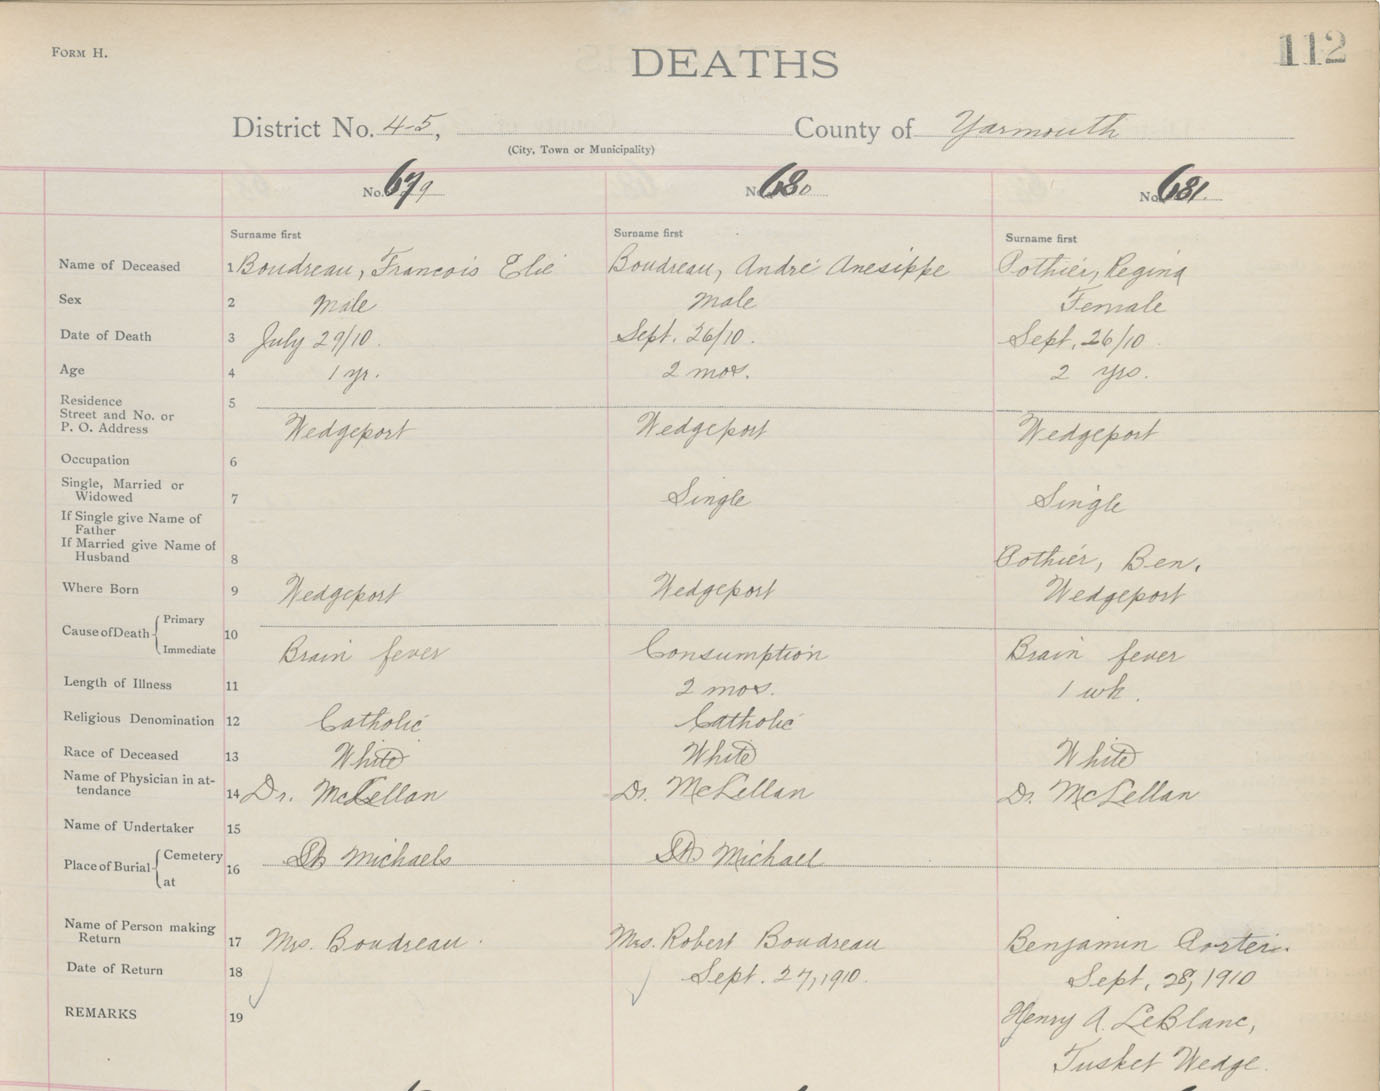 FORM H.
DEATHS
112
District No. 45,
County of Yarmouth
(City, Town or Municipality)
No. 679
No. 680
No. 681.
Surname first
Surname first
Surname first
Name of Deceased 1 Boudreau, Francois Elie Boudreau, André Anesippe Pothier, Regina
Sex 2 Male Male Female
Date of Death 3 July 29/10. Sept. 26/10. Sept. 26/10.
Age 4 1 yr. 2 mos. 2 yrs.
Residence 5
Street and No. or
P. O. Address Wedgeport Wedgeport Wedgeport
Occupation 6
Single, Married or
Widowed 7 Single Single
If Single give Name of
Father
If Married give Name of
Husband 8 Pothier, Ben.
Where Born 9 Wedgeport Wedgeport Wedgeport
Cause of Death Primary 10
Immediate Brain fever Consumption Brain fever
Length of Illness 11 2 mos. 1 wk.
Religious Denomination 12 Catholic Catholic
Race of Deceased 13 White White White
Name of Physician in at-
tendance 14 Dr. McLellan Dr. McLellan Dr. McLellan
Name of Undertaker 15
Place of Burial Cemetery 16 St Michaels St Michael
at
Name of Person making
Return 17 Mrs. Boudreau. Mrs. Robert Boudreau Benjamin
Date of Return 18 Sept. 27, 1910. Sept. 28, 1910
REMARKS 19 Henry A. LeBlanc,
Tusket Wedge.